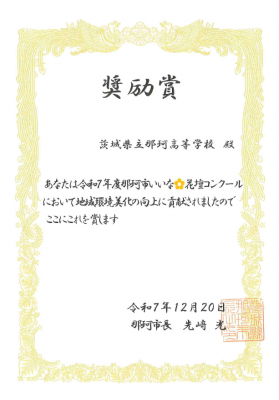 奨励賞
茨城県立那珂高等学校 殿
あなたは令和7年度那珂市いいな花壇コンクール
において地域環境美化の向上に貢献されましたので
ここにこれを賞します
令和7年12月20日
那珂市長 先﨑 光